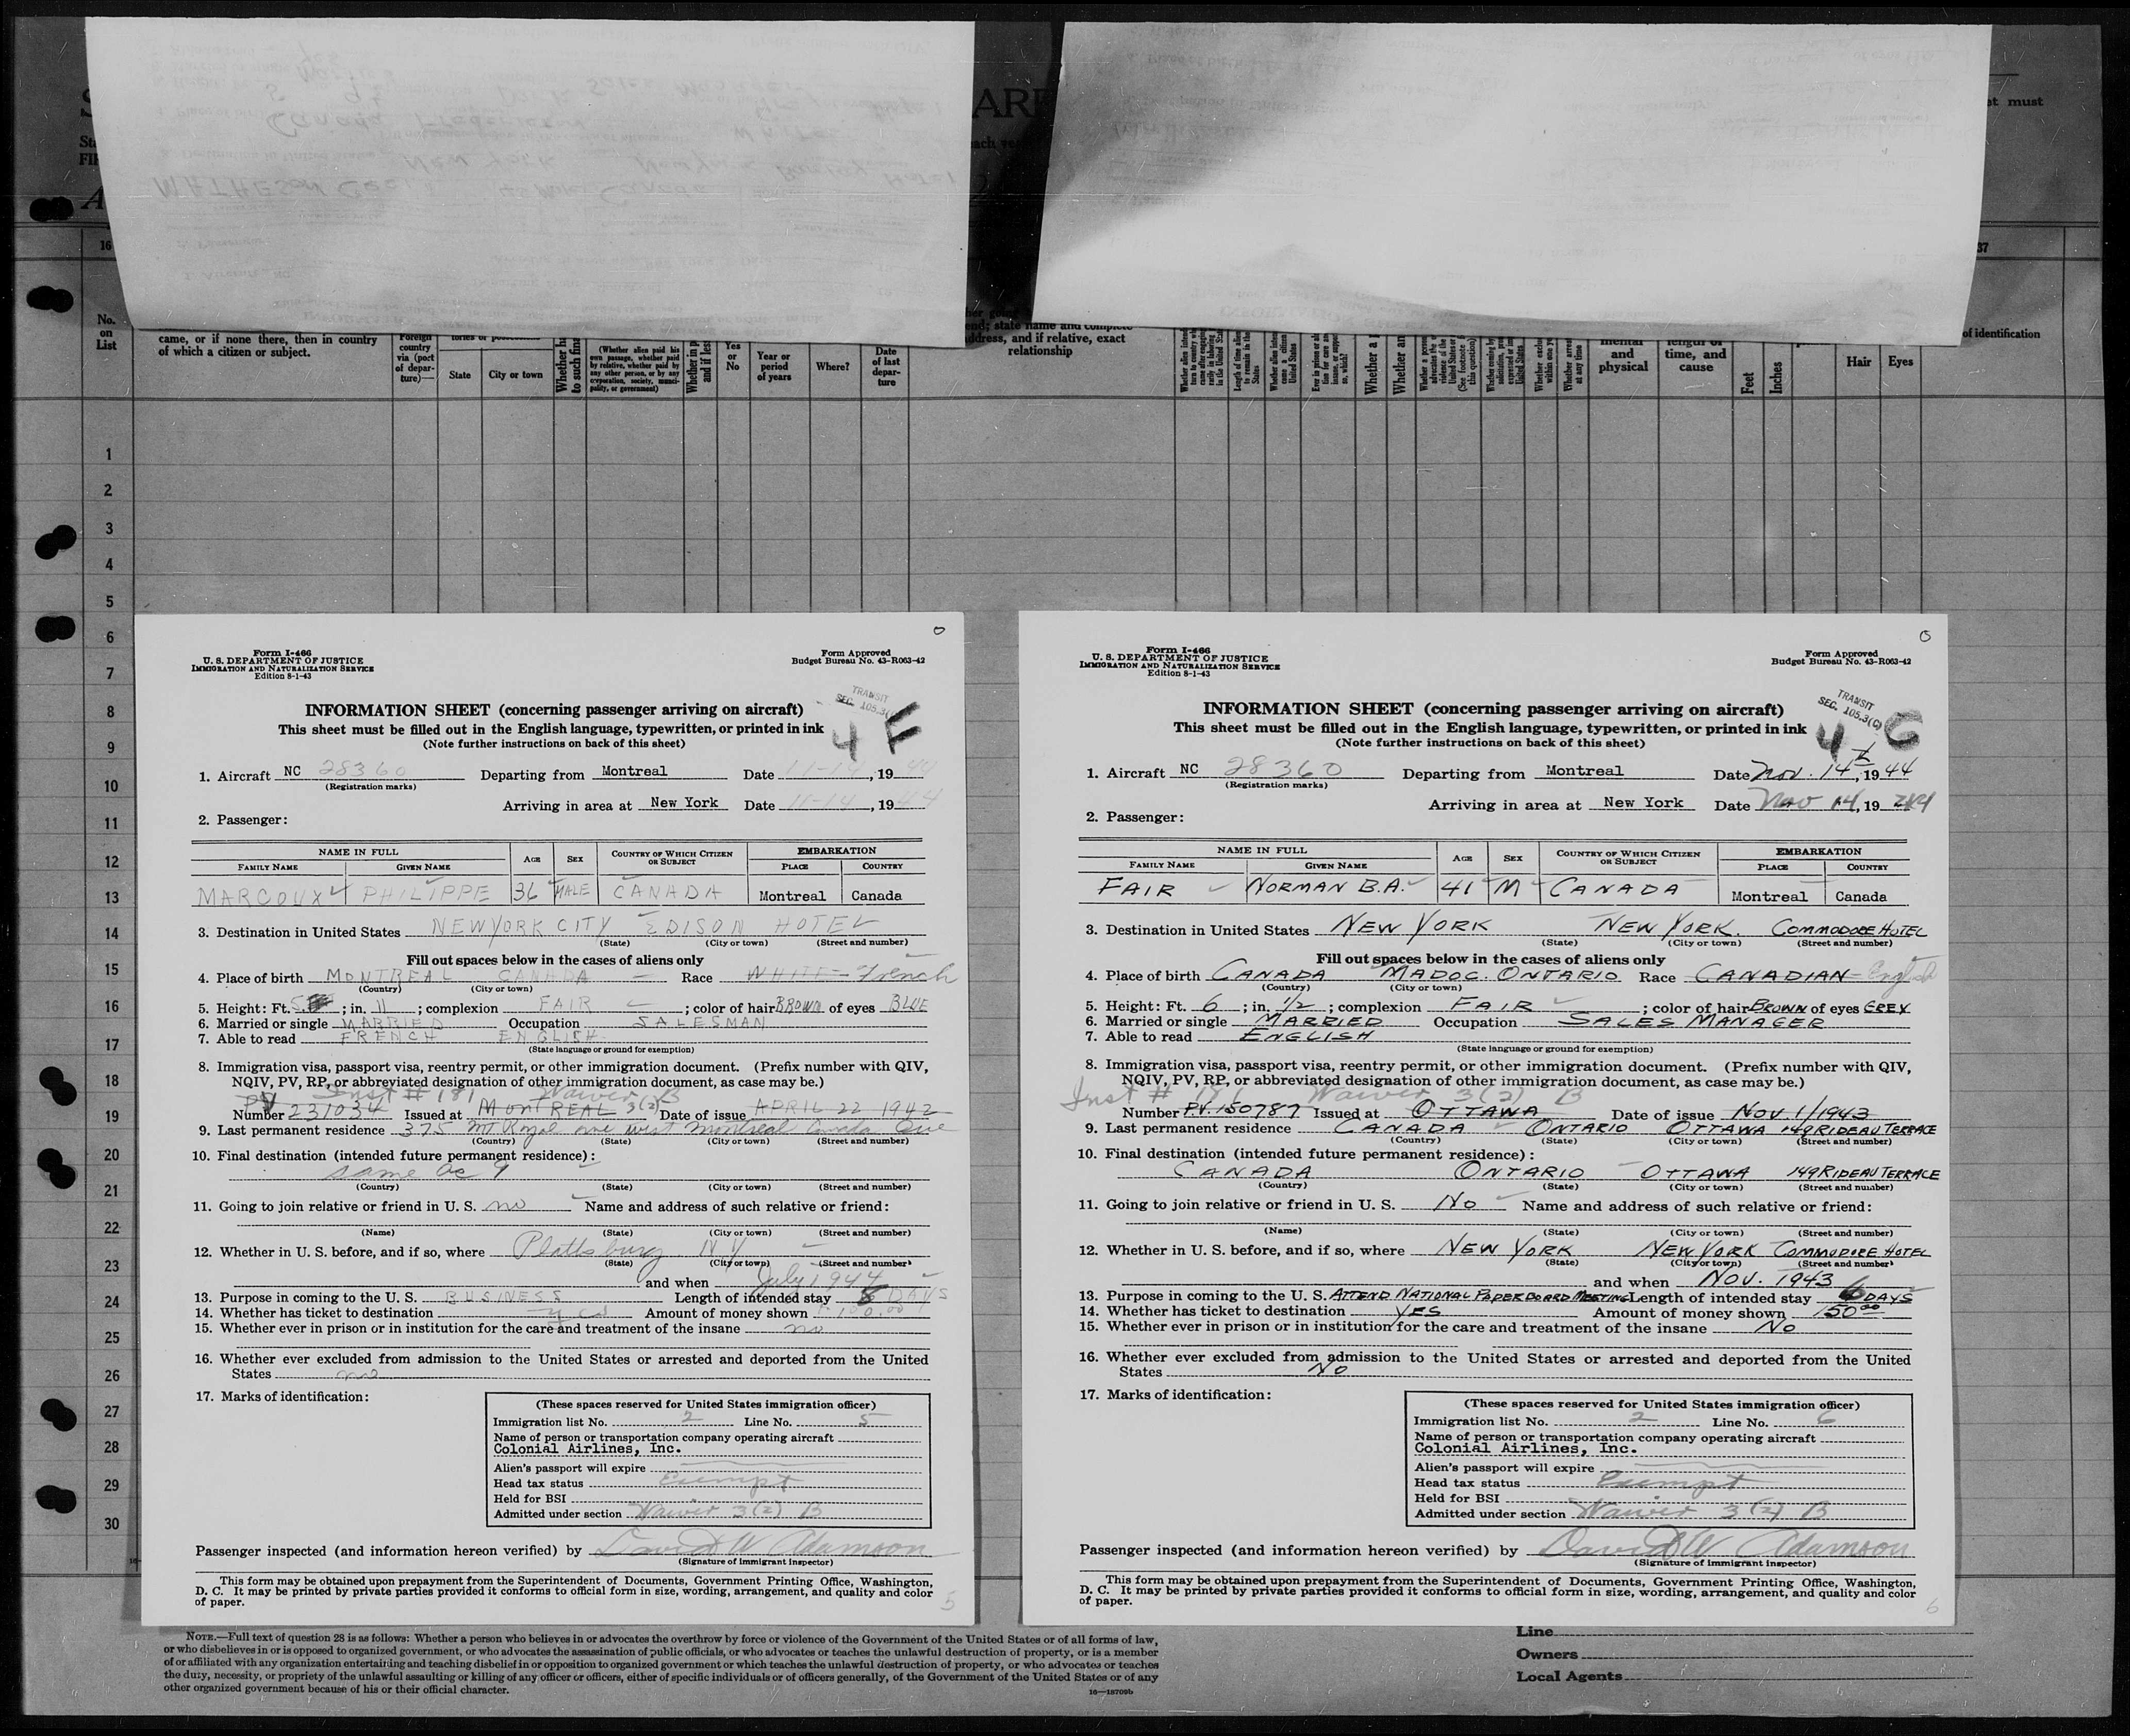 ARR
No. on List
came, or if none there, then in country of which a citizen or subject.
Foreign country via (port of departure)—
State
City or town
(Whether alien paid his own passage, whether paid by relative, whether paid by any other person, or by any corporation, society, municipality, or government)
Yes or No
Year or period of years
Where?
Date of last departure
relationship
Feet
Inches
Hair
Eyes
of identification
1
2
3
4
5
6
7
8
9
10
11
12
13
14
15
16
17
18
19
20
21
22
23
24
25
26
27
28
29
30
O
Form I-466
U. S. DEPARTMENT OF JUSTICE
IMMIGRATION AND NATURALIZATION SERVICE
Edition 8-1-43
Form Approved
Budget Bureau No. 43-R063-42
TRANSIT
SEC. 105.3(
4 F
INFORMATION SHEET (concerning passenger arriving on aircraft)
This sheet must be filled out in the English language, typewritten, or printed in ink
(Note further instructions on back of this sheet)
1. Aircraft NC 28360 Departing from Montreal Date 11-14, 1944
(Registration marks)
Arriving in area at New York Date 11-14, 1944
2. Passenger:
NAME IN FULL AGE SEX COUNTRY OF WHICH CITIZEN OR SUBJECT EMBARKATION
FAMILY NAME GIVEN NAME PLACE COUNTRY
MARCOUX PHILIPPE 36 MALE CANADA Montreal Canada
3. Destination in United States NEW YORK CITY EDISON HOTEL
(State) (City or town) (Street and number)
Fill out spaces below in the cases of aliens only
4. Place of birth MONTREAL CANADA Race WHITE French
(Country) (City or town)
5. Height: Ft. 5 ; in. 11 ; complexion FAIR ; color of hair BROWN of eyes BLUE
6. Married or single MARRIED Occupation SALESMAN
7. Able to read FRENCH ENGLISH
(State language or ground for exemption)
8. Immigration visa, passport visa, reentry permit, or other immigration document. (Prefix number with QIV,
NQIV, PV, RP, or abbreviated designation of other immigration document, as case may be.)
Inst # 181 Waiver 3(2) B
Number PV 231034 Issued at MONTREAL Date of issue APRIL 22 1942
9. Last permanent residence 375 Mt Royal ave west Montreal Canada Que
(Country) (State) (City or town) (Street and number)
10. Final destination (intended future permanent residence):
same as 9
(Country) (State) (City or town) (Street and number)
11. Going to join relative or friend in U. S. no Name and address of such relative or friend:
(Name) (State) (City or town) (Street and number)
12. Whether in U. S. before, and if so, where Plattsburg N Y
(State) (City or town) (Street and number)
and when July 1944
13. Purpose in coming to the U. S. BUSINESS Length of intended stay DAYS
14. Whether has ticket to destination yes Amount of money shown 100.00
15. Whether ever in prison or in institution for the care and treatment of the insane no
16. Whether ever excluded from admission to the United States or arrested and deported from the United
States no
17. Marks of identification:
(These spaces reserved for United States immigration officer)
Immigration list No. 2 Line No. 5
Name of person or transportation company operating aircraft
Colonial Airlines, Inc.
Alien's passport will expire
Head tax status Exempt
Held for BSI
Admitted under section Waiver 3(2) B
Passenger inspected (and information hereon verified) by David W Adamson
(Signature of Immigrant Inspector)
This form may be obtained upon prepayment from the Superintendent of Documents, Government Printing Office, Washington,
D. C. It may be printed by private parties provided it conforms to official form in size, wording, arrangement, and quality and color
of paper.
5
O
Form I-466
U. S. DEPARTMENT OF JUSTICE
IMMIGRATION AND NATURALIZATION SERVICE
Edition 8-1-43
Form Approved
Budget Bureau No. 43-R063-42
TRANSIT
SEC. 105.3(C)
4 G
INFORMATION SHEET (concerning passenger arriving on aircraft)
This sheet must be filled out in the English language, typewritten, or printed in ink
(Note further instructions on back of this sheet)
1. Aircraft NC 28360 Departing from Montreal Date Nov. 14, 1944
(Registration marks)
Arriving in area at New York Date Nov 14, 1944
2. Passenger:
NAME IN FULL AGE SEX COUNTRY OF WHICH CITIZEN OR SUBJECT EMBARKATION
FAMILY NAME GIVEN NAME PLACE COUNTRY
FAIR NORMAN B.A. 41 M CANADA Montreal Canada
3. Destination in United States NEW YORK NEW YORK. COMMODORE HOTEL
(State) (City or town) (Street and number)
Fill out spaces below in the cases of aliens only
4. Place of birth CANADA MADOC. ONTARIO Race CANADIAN English
(Country) (City or town)
5. Height: Ft. 6 ; in. 1/2 ; complexion FAIR ; color of hair BROWN of eyes GREY
6. Married or single MARRIED Occupation SALES MANAGER
7. Able to read ENGLISH
(State language or ground for exemption)
8. Immigration visa, passport visa, reentry permit, or other immigration document. (Prefix number with QIV,
NQIV, PV, RP, or abbreviated designation of other immigration document, as case may be.)
Inst # 181 Waiver 3(2) B
Number P.V. 150787 Issued at OTTAWA Date of issue NOV 1/1943
9. Last permanent residence CANADA ONTARIO OTTAWA 149 RIDEAU TERRACE
(Country) (State) (City or town) (Street and number)
10. Final destination (intended future permanent residence):
CANADA ONTARIO OTTAWA 149 RIDEAU TERRACE
(Country) (State) (City or town) (Street and number)
11. Going to join relative or friend in U. S. NO Name and address of such relative or friend:
(Name) (State) (City or town) (Street and number)
12. Whether in U. S. before, and if so, where NEW YORK NEW YORK COMMODORE HOTEL
(State) (City or town) (Street and number)
and when NOV. 1943
13. Purpose in coming to the U. S. ATTEND NATIONAL PAPERBOARD MEETING Length of intended stay 6 DAYS
14. Whether has ticket to destination YES Amount of money shown 150.00
15. Whether ever in prison or in institution for the care and treatment of the insane NO
16. Whether ever excluded from admission to the United States or arrested and deported from the United
States NO
17. Marks of identification:
(These spaces reserved for United States immigration officer)
Immigration list No. 2 Line No. 6
Name of person or transportation company operating aircraft
Colonial Airlines, Inc.
Alien's passport will expire
Head tax status Exempt
Held for BSI
Admitted under section Waiver 3(2) B
Passenger inspected (and information hereon verified) by David W Adamson
(Signature of Immigrant Inspector)
This form may be obtained upon prepayment from the Superintendent of Documents, Government Printing Office, Washington,
D. C. It may be printed by private parties provided it conforms to official form in size, wording, arrangement, and quality and color
of paper.
6
NOTE.—Full text of question 28 is as follows: Whether a person who believes in or advocates the overthrow by force or violence of the Government of the United States or of all forms of law,
or who disbelieves in or is opposed to organized government, or who advocates the assassination of public officials, or who advocates or teaches the unlawful destruction of property, or is a member
of or affiliated with any organization entertaining and teaching disbelief in or opposition to organized government or which teaches the unlawful destruction of property, or who advocates or teaches
the duty, necessity, or propriety of the unlawful assaulting or killing of any officer or officers, either of specific individuals or of officers generally, of the Government of the United States or of any
other organized government because of his or their official character.
16—18709b
Line
Owners
Local Agents